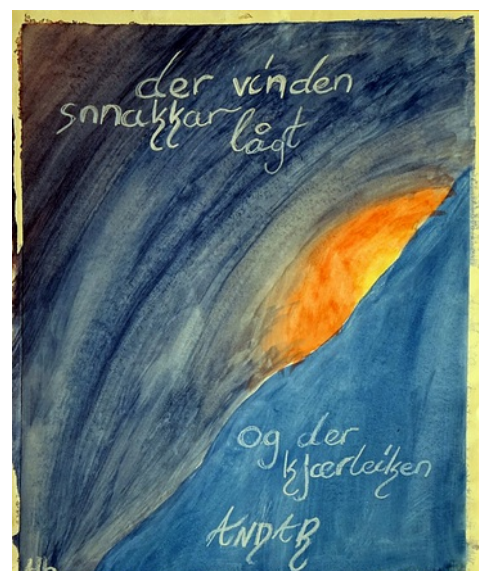 der vinden
snnakkar
lågt
og der
kjærleiken
ANDAR